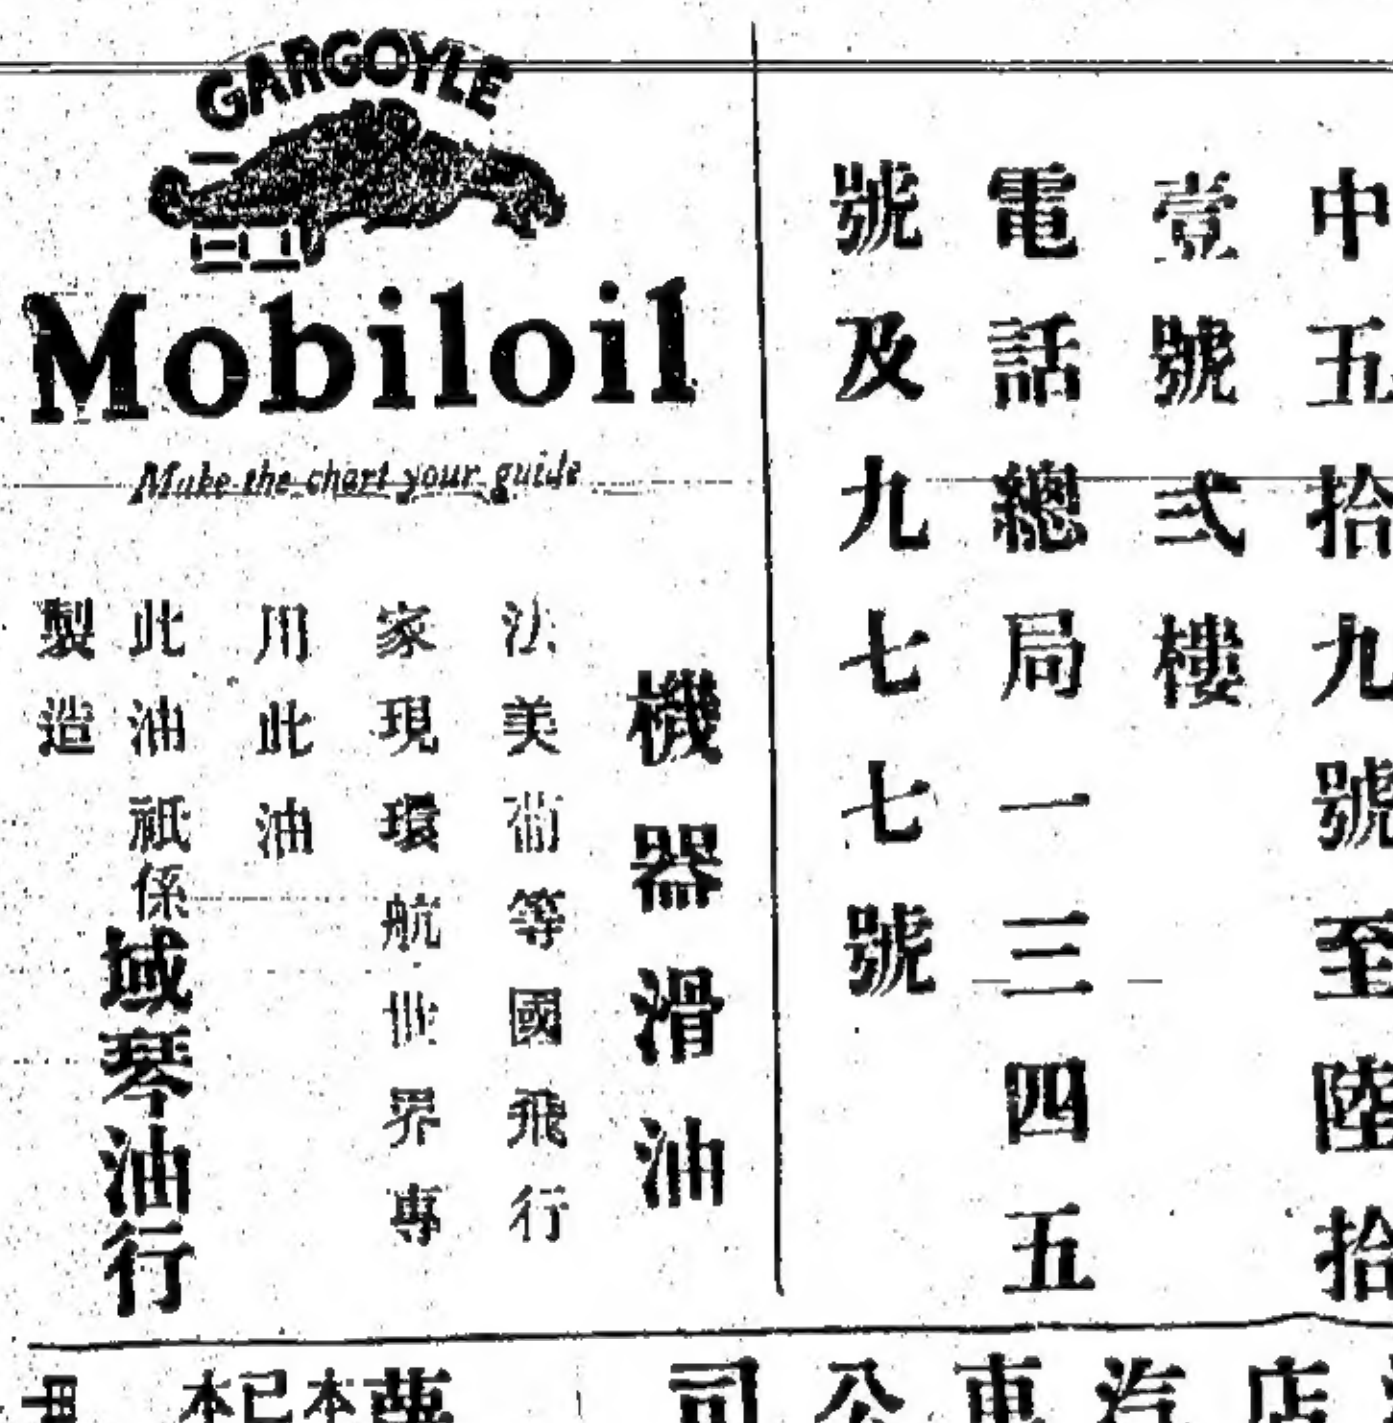 GARGOYLE
Mobiloil
Make the chart your guide
機器滑油
法美葡等國飛行
家現環航世界專
用此油
此油祇係域琴油行
製造
中五拾九號至陸拾
壹號弍樓
電話總局一三四五
號及九七七號
司公車汽店
本己本